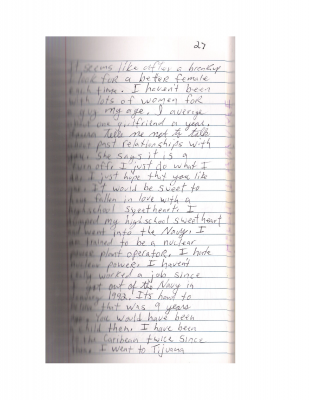 27
It seems like after a breakup
I look for a beter female
each time. I haven't been
with lots of women for
a guy my age. I average
about one girlfriend a year.
tells me not to talk
about past relationships with
you. She says it is a
turn off. I just do what I
do. I just hope that you like
me. It would be sweet to
have fallen in love with a
highschool sweetheart. I
dumped my highschool sweetheart
and went into the Navy. I
am trained to be a nuclear
power plant operator. I hate
nuclear power. I haven't
really worked a job since
I got out of the Navy in
1992. Its hard to
believe that was 9 years
ago. You would have been
a child then. I have been
to the Caribean twice since
then. I went to Tijuana